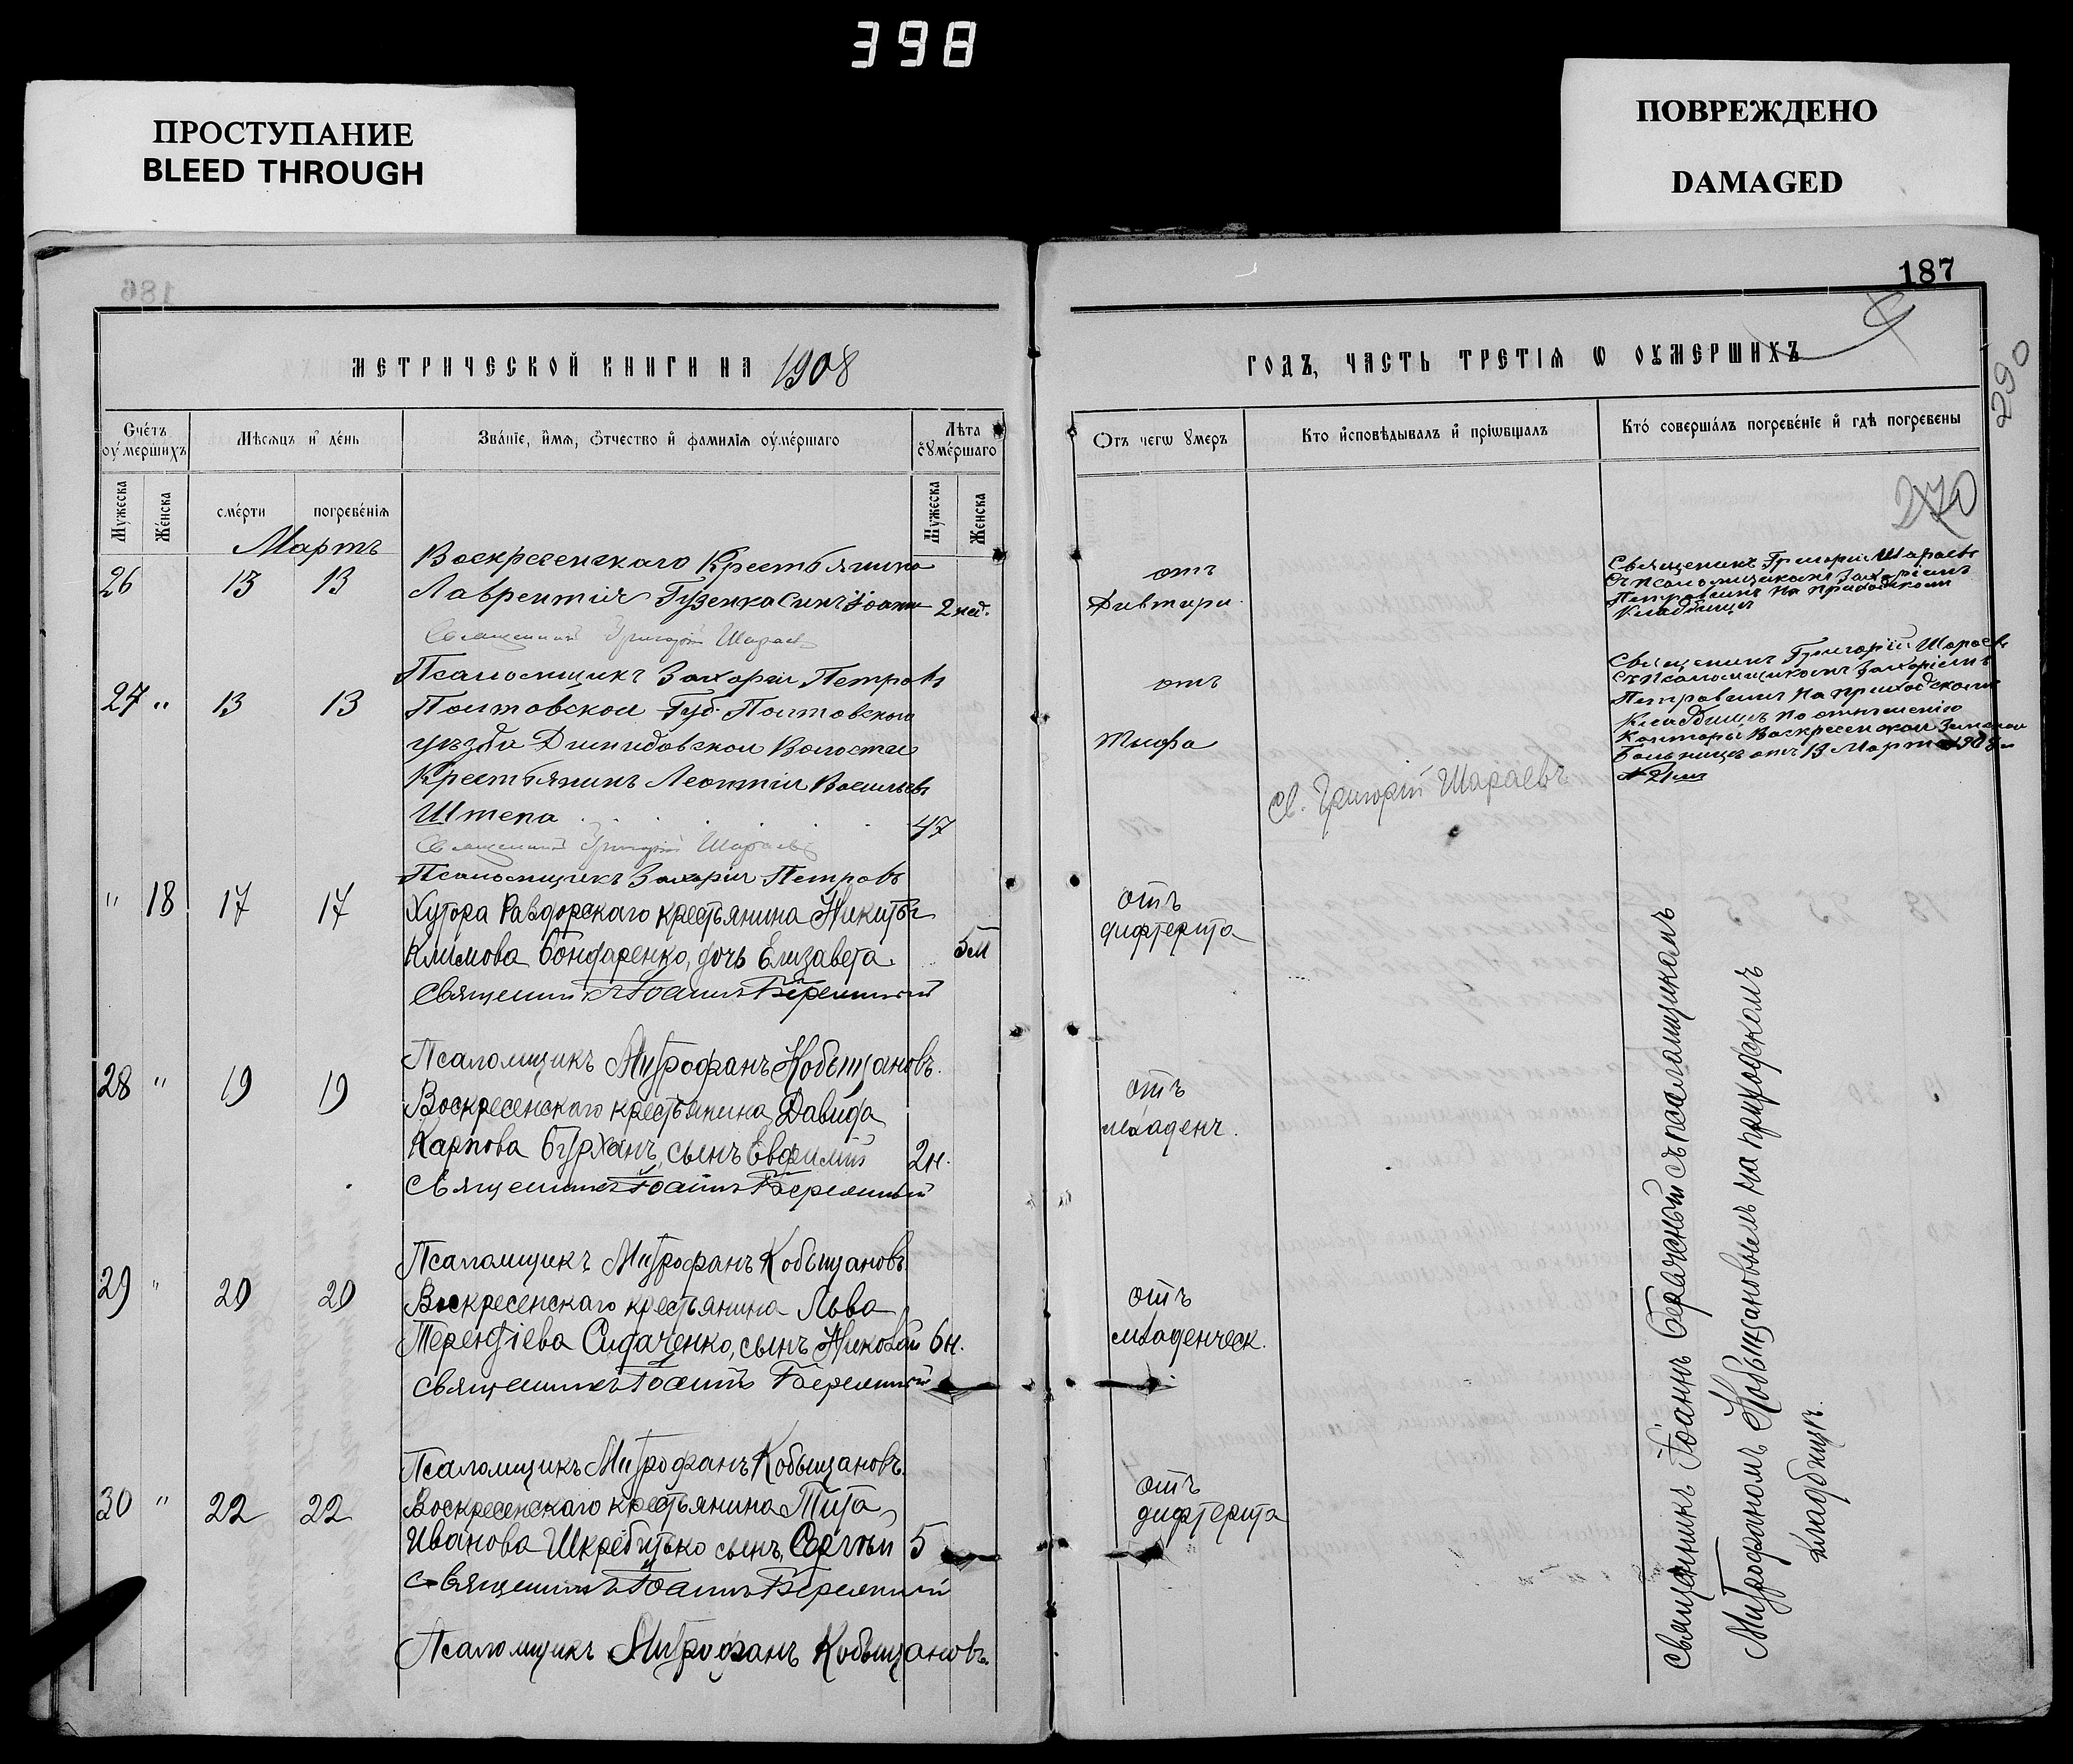 398
ПРОСТУПАНИЕ
BLEED THROUGH
ПОВРЕЖДЕНО
DAMAGED
186
187
290
270
МЕТРИЧЕСКОЙ КНИГИ НА 1908
ГОДЪ, ЧАСТЬ ТРЕТІѦ Ѡ ОУМЕРШИХЪ
Счетъ оумершихъ
Мѣсѧцъ и день
Званіе, имѧ, отчество и фамиліѧ оумершаго
Лѣта оумершаго
Отъ чегѡ умеръ
Кто исповѣдывалъ и пріѡбщалъ
Кто совершалъ погребеніе и гдѣ погребены
Мужеска
Женска
смерти
погребеніѧ
Мужеска
Женска
Мартъ
26 13 13
Воскресенскаго Крестьянина
Лаврентія Гузенка Сынъ Іоаннъ 2 нед.
отъ
Дифтери.
Священникъ Григорій Шараевъ
съ псаломщикомъ Захаріемъ
Петровымъ на приходскомъ
Кладбищѣ
Священникъ Григорій Шараевъ
Псаломщикъ Захарій Петровъ
27 " 13 13
Полтавской Губ. Полтавскаго
уѣзда Демидовской Волости
Крестьянинъ Леонтій Васильевъ
Штепа 47
отъ
тифа
Св. Григорій Шараевъ
Священникъ Григорій Шараевъ
съ Псаломщикомъ Захаріемъ
Петровымъ на приходскомъ
Кладбищѣ по отношенію
Конторы Воскресенской Земской
Больницы отъ 13 Марта 1908 г.
Священникъ Григорій Шараевъ
Псаломщикъ Захарій Петровъ
" 18 17 17
Хутора Раздорскаго крестьянина Никиты
Климова Бондаренко, дочь Елизавета 5 м
отъ
дифтерита
Священникъ Іоаннъ Бережный
Псаломщикъ Митрофанъ Кобыщановъ.
28 " 19 19
Воскресенскаго крестьянина Давида
Карпова Бурханъ, сынъ Евфимій 2 н.
отъ
младенч.
Священникъ Іоаннъ Бережный
Псаломщикъ Митрофанъ Кобыщановъ
29 " 20 20
Воскресенскаго крестьянина Льва
Терентіева Сидаченко, сынъ Николай 6 н.
отъ
младенческ.
Священникъ Іоаннъ Бережный
Псаломщикъ Митрофанъ Кобыщановъ.
30 " 22 22
Воскресенскаго крестьянина Тита
Иванова Шкребитько сынъ, Сергѣй 5
отъ
дифтерита
Священникъ Іоаннъ Бережный
Псаломщикъ Митрофанъ Кобыщановъ.
Священникъ Іоаннъ Бережный съ псаломщикомъ
Митрофаномъ Кобыщановымъ на приходскомъ
кладбищѣ.